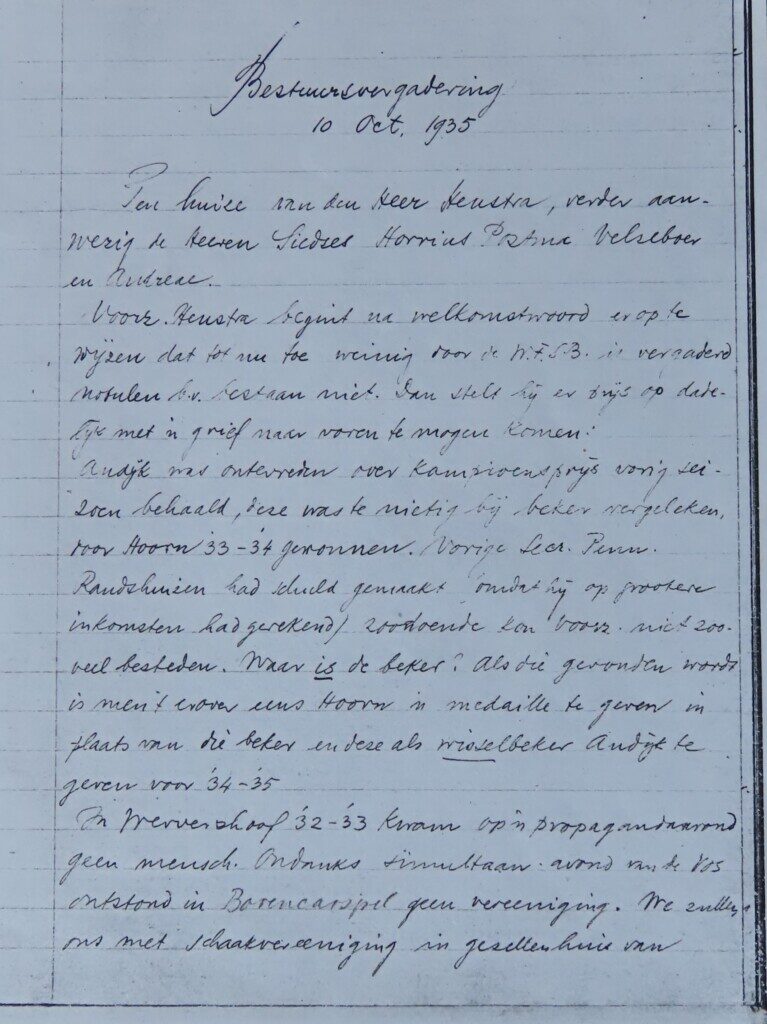 Bestuursvergadering
10 Oct. 1935
Ten huize van den Heer Henstra, verder aan-
wezig de Heeren Siedses Horrius Postma Velseboer
en Andreae.
Voorz. Henstra begint na welkomstwoord er op te
wijzen dat tot nu toe weinig door de W.F.S.B. is vergaderd
notulen b.v. bestaan niet. Dan stelt hij er prijs op dade-
lijk met 'n grief naar voren te mogen komen:
Andijk was ontevreden over kampioensprijs vorig sei-
zoen behaald, deze was te nietig bij beker vergeleken,
door Hoorn '33-'34 gewonnen. Vorige Secr. Penn.
Randshuizen had schuld gemaakt (omdat hij op grootere
inkomsten had gerekend) zoodoende kon Voorz. niet zoo-
veel besteden. Waar is de beker? Als die gevonden wordt
is men 't erover eens Hoorn 'n medaille te geven in
plaats van die beker en deze als wisselbeker Andijk te
geven voor '34-'35
In Wervershoof '32-'33 kwam op 'n propagandaavond
geen mensch. Ondanks simultaan-avond van de Vos
ontstond in Bovencarspel geen vereeniging. We zullen
ons met schaakvereeniging in gezellenhuis van